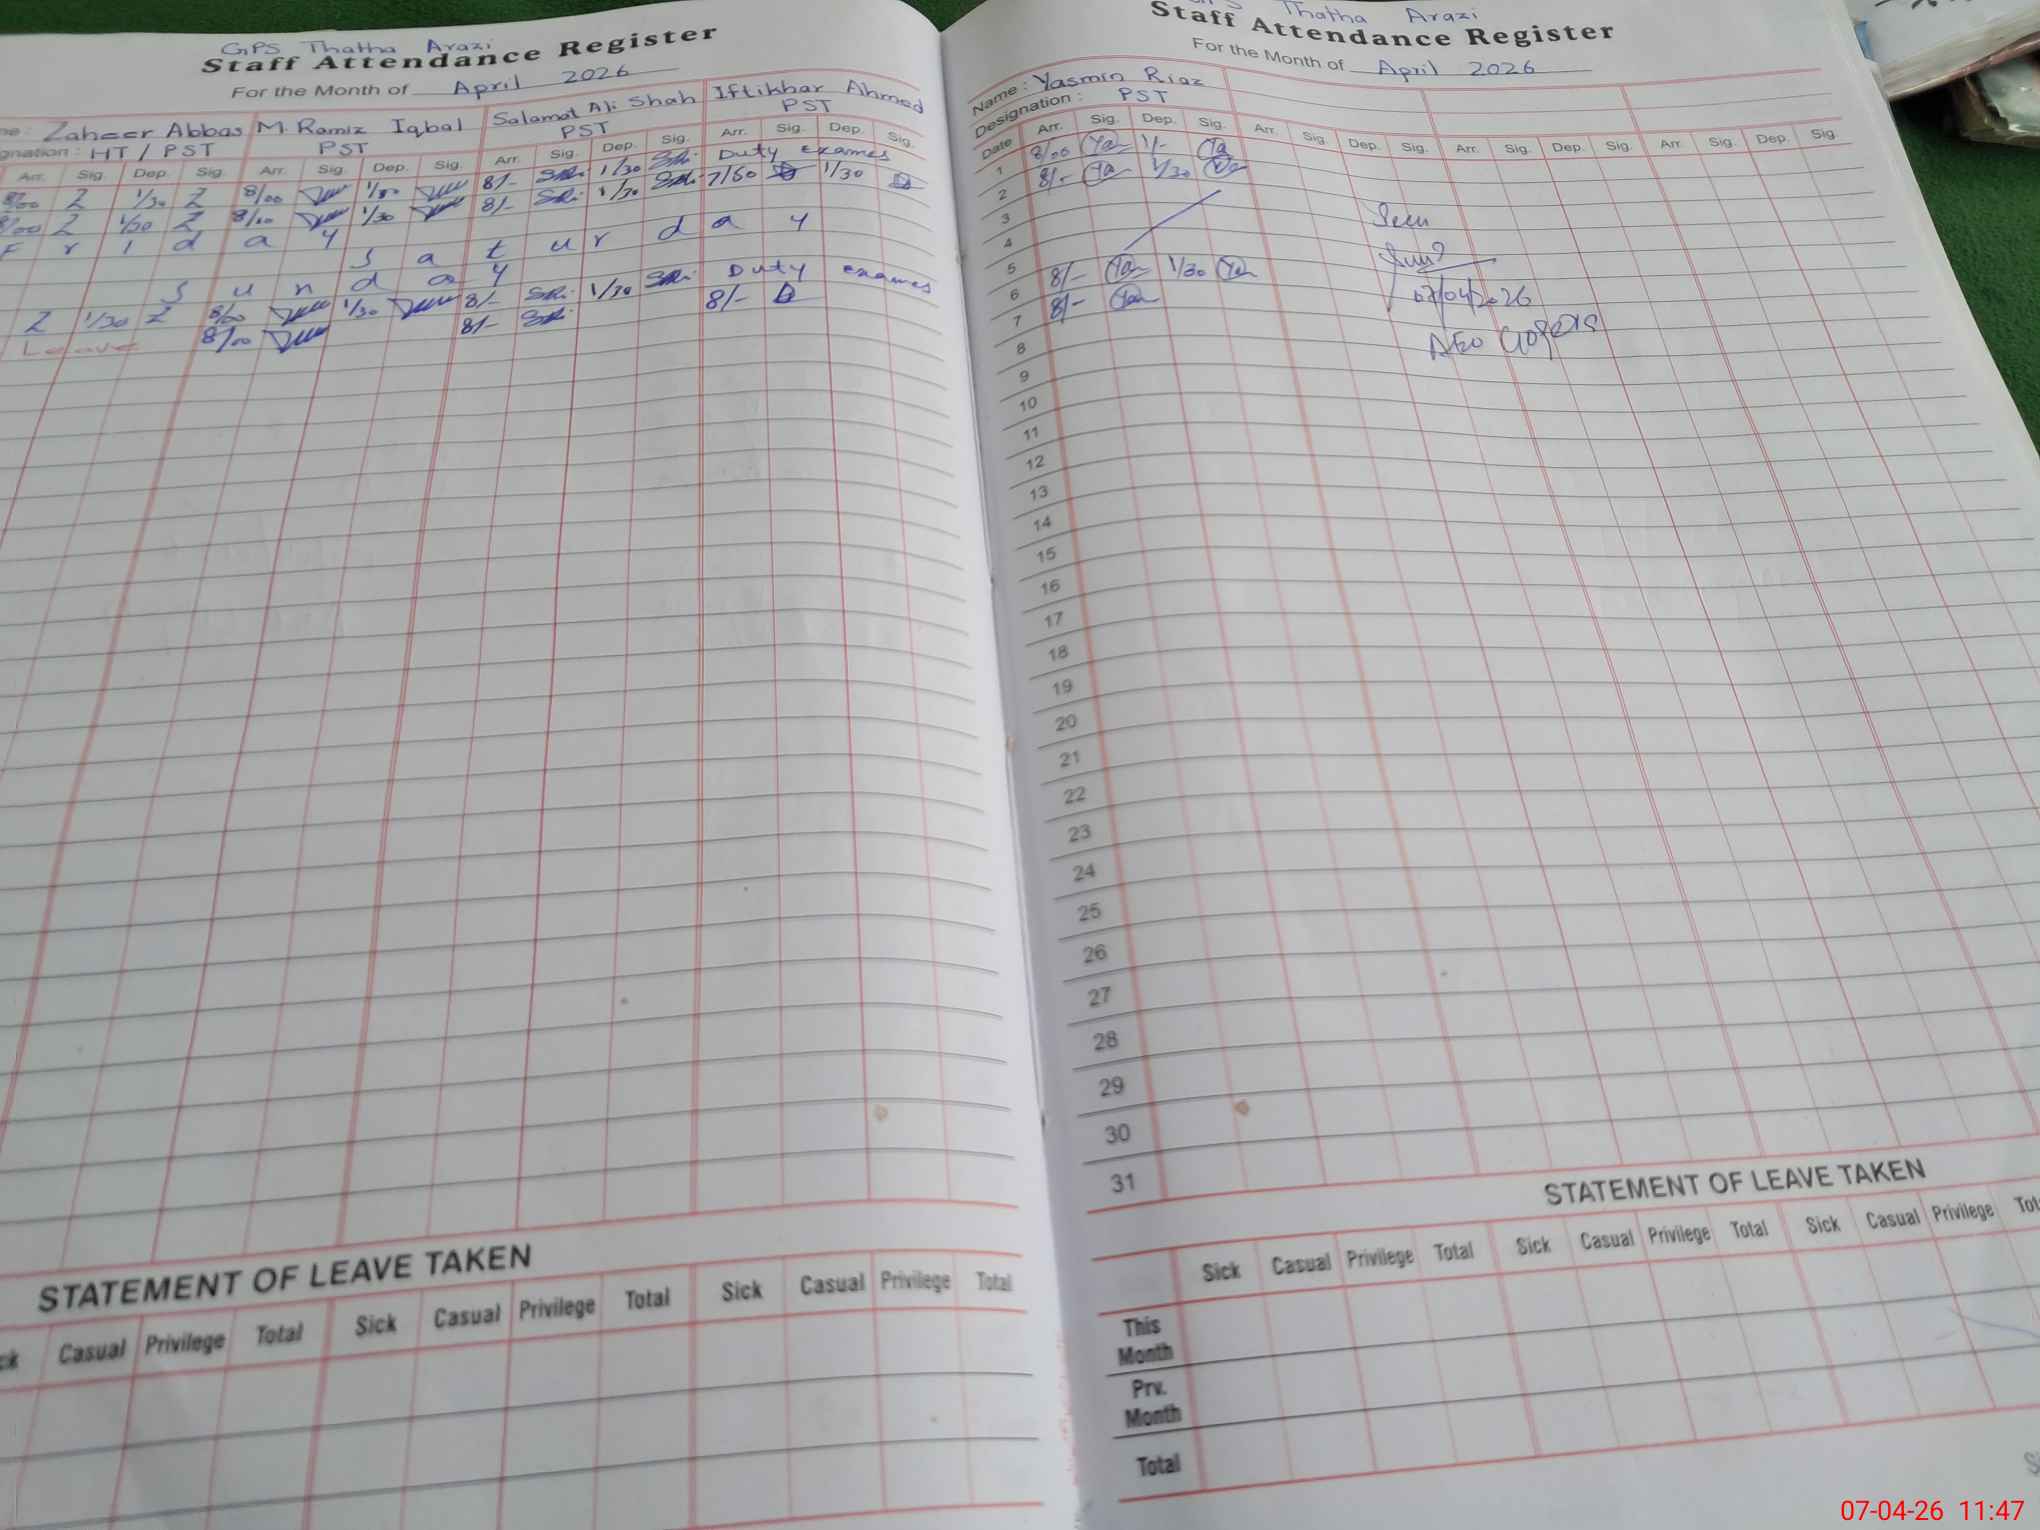 GPS Thatha Arazi
Staff Attendance Register
For the Month of April 2026
Zaheer Abbas M. Ramiz Iqbal Salamat Ali Shah Iftikhar Ahmed
gnation : HT / PST PST PST PST
Arr. Sig. Dep. Sig. Arr. Sig. Dep. Sig. Arr. Sig. Dep. Sig. Arr. Sig. Dep. Sig.
8/00 Z 1/30 Z 8/00 1/30 8/- 1/30 Duty exames
8/00 Z 1/30 Z 8/00 1/30 8/- 1/30 7/50 1/30
F r i d a y
S a t u r d a y
S u n d a y
Z 1/30 Z 8/00 1/30 8/- 1/30 Duty exames
Leave 8/00 8/- 8/-
STATEMENT OF LEAVE TAKEN
ck Casual Privilege Total Sick Casual Privilege Total Sick Casual Privilege Total
Thatha Arazi
Staff Attendance Register
For the Month of April 2026
Name : Yasmin Riaz
Designation : PST
Date Arr. Sig. Dep. Sig. Arr. Sig. Dep. Sig. Arr. Sig. Dep. Sig. Arr. Sig. Dep. Sig.
1 8/00 Ya 1/- Ya
2 8/- Ya 1/30 Ya
3
4
5
6 8/- Ya 1/30 Ya
7 8/- Ya
8
9
10
11
12
13
14
15
16
17
18
19
20
21
22
23
24
25
26
27
28
29
30
31
Seen
07/04/2026
AEO
STATEMENT OF LEAVE TAKEN
Sick Casual Privilege Total Sick Casual Privilege Total Sick Casual Privilege Tot
This Month
Prv. Month
Total
07-04-26 11:47